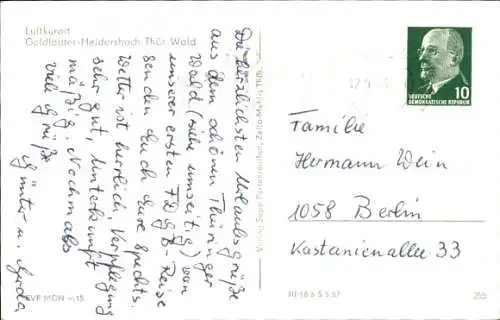 Luftkurort
Goldlauter-Heidersbach Thür. Wald
Die herzlichsten Urlaubsgrüße
aus dem schönen Thüringer
Wald (siehe umseitig) von
unserer ersten FDGB-Reise
senden euch Eure Spechts.
Wetter ist herrlich, Verpflegung
sehr gut, Unterkunft
mäßig. Nochmals
viele Grüße
Günter u. Gerda
EVP MDN -,15
Verlag Sepp Postenrieder, Zella-Mehlis Thür.
12.9
10
DEUTSCHE
DEMOKRATISCHE REPUBLIK
Familie
Hermann Wein
1058 Berlin
Kastanienallee 33
III/18 6 S 5 67